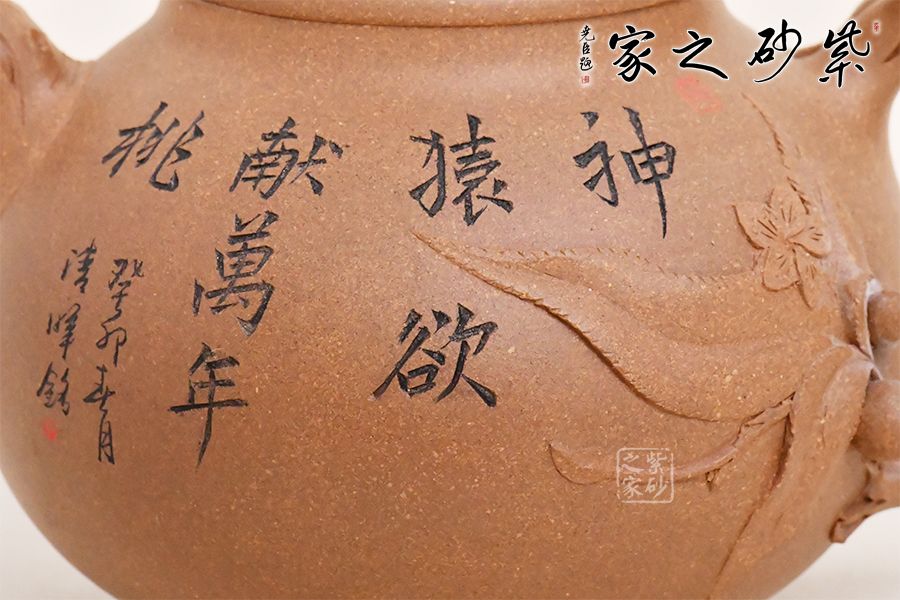 紫砂之家
尧臣题
神
猿欲
献萬年
桃
癸卯春月
清峰銘
紫砂之家